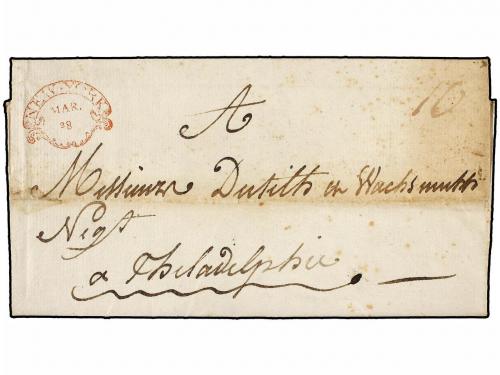 NEW-YORK
MAR.
28
10
A
Messieurs Dutilh et Wachsmuth
Negt
a Philadelphie